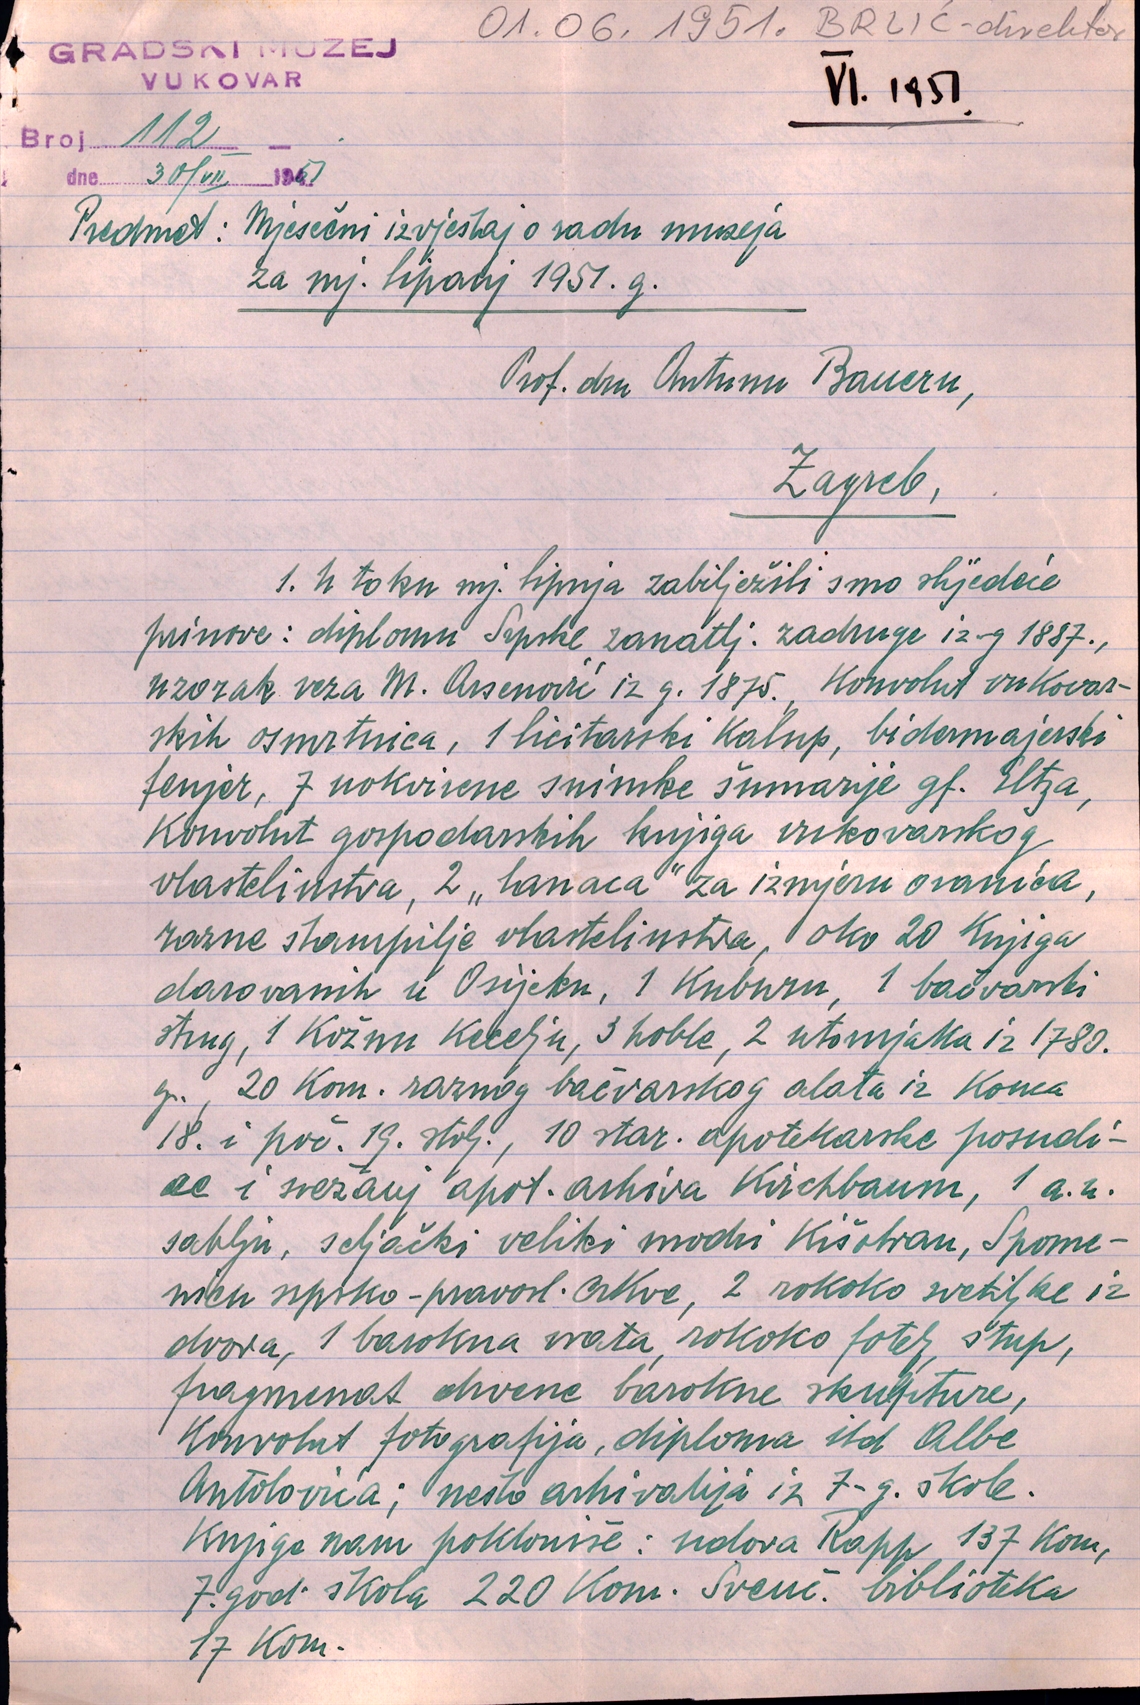 01.06.1951. BRLIĆ-direktor
GRADSKI MUZEJ
VUKOVAR
VI. 1951.
Broj 112
dne 30/VII 1951
Predmet: Mjesečni izvještaj o radu muzeja
za mj. lipanj 1951. g.
Prof. dru Antunu Baueru,
Zagreb,
1. U toku mj. lipnja zabilježili smo slijedeće
prinove: diplomu Srpske zanatlj. zadruge iz g 1887.,
uzorak veza M. Arsenović iz g. 1875., Konvolut vukovar-
skih osmrtnica, 1 licitarski Kalup, bidermajerski
fenjer, 7 uokvirene snimke šumarije gf. Eltza,
Konvolut gospodarskih knjiga vukovarskog
vlastelinstva, 2 „lanaca" za izmjeru oranica,
razne štampilje vlastelinstva, oko 20 Knjiga
darovanih u Osijeku, 1 Kuburu, 1 bačvarski
strug, 1 Kožnu Kecelju, 3 hoble, 2 utornjaka iz 1780.
g., 20 Kom. raznog bačvarskog alata iz Konca
18. i poč. 19. stolj., 10 star. apotekarske posudi-
ce i svežanj apot. arhiva Kirchbaum, 1 a.u.
sablju, seljački veliki modri Kišobran, Spome-
nicu srpsko-pravosl. crkve, 2 rokoko svetiljke iz
dvora, 1 barokna vrata, rokoko fotelj, stup,
fragmenat drvene barokne skulpture,
Konvolut fotografija, diploma itd Albe
Antolovića; nešto arhivalija iz 7-g. škole.
Knjige nam pokloniše: udova Rapp 137 Kom,
7.god škola 220 Kom. Sveuč. biblioteka
17 Kom.